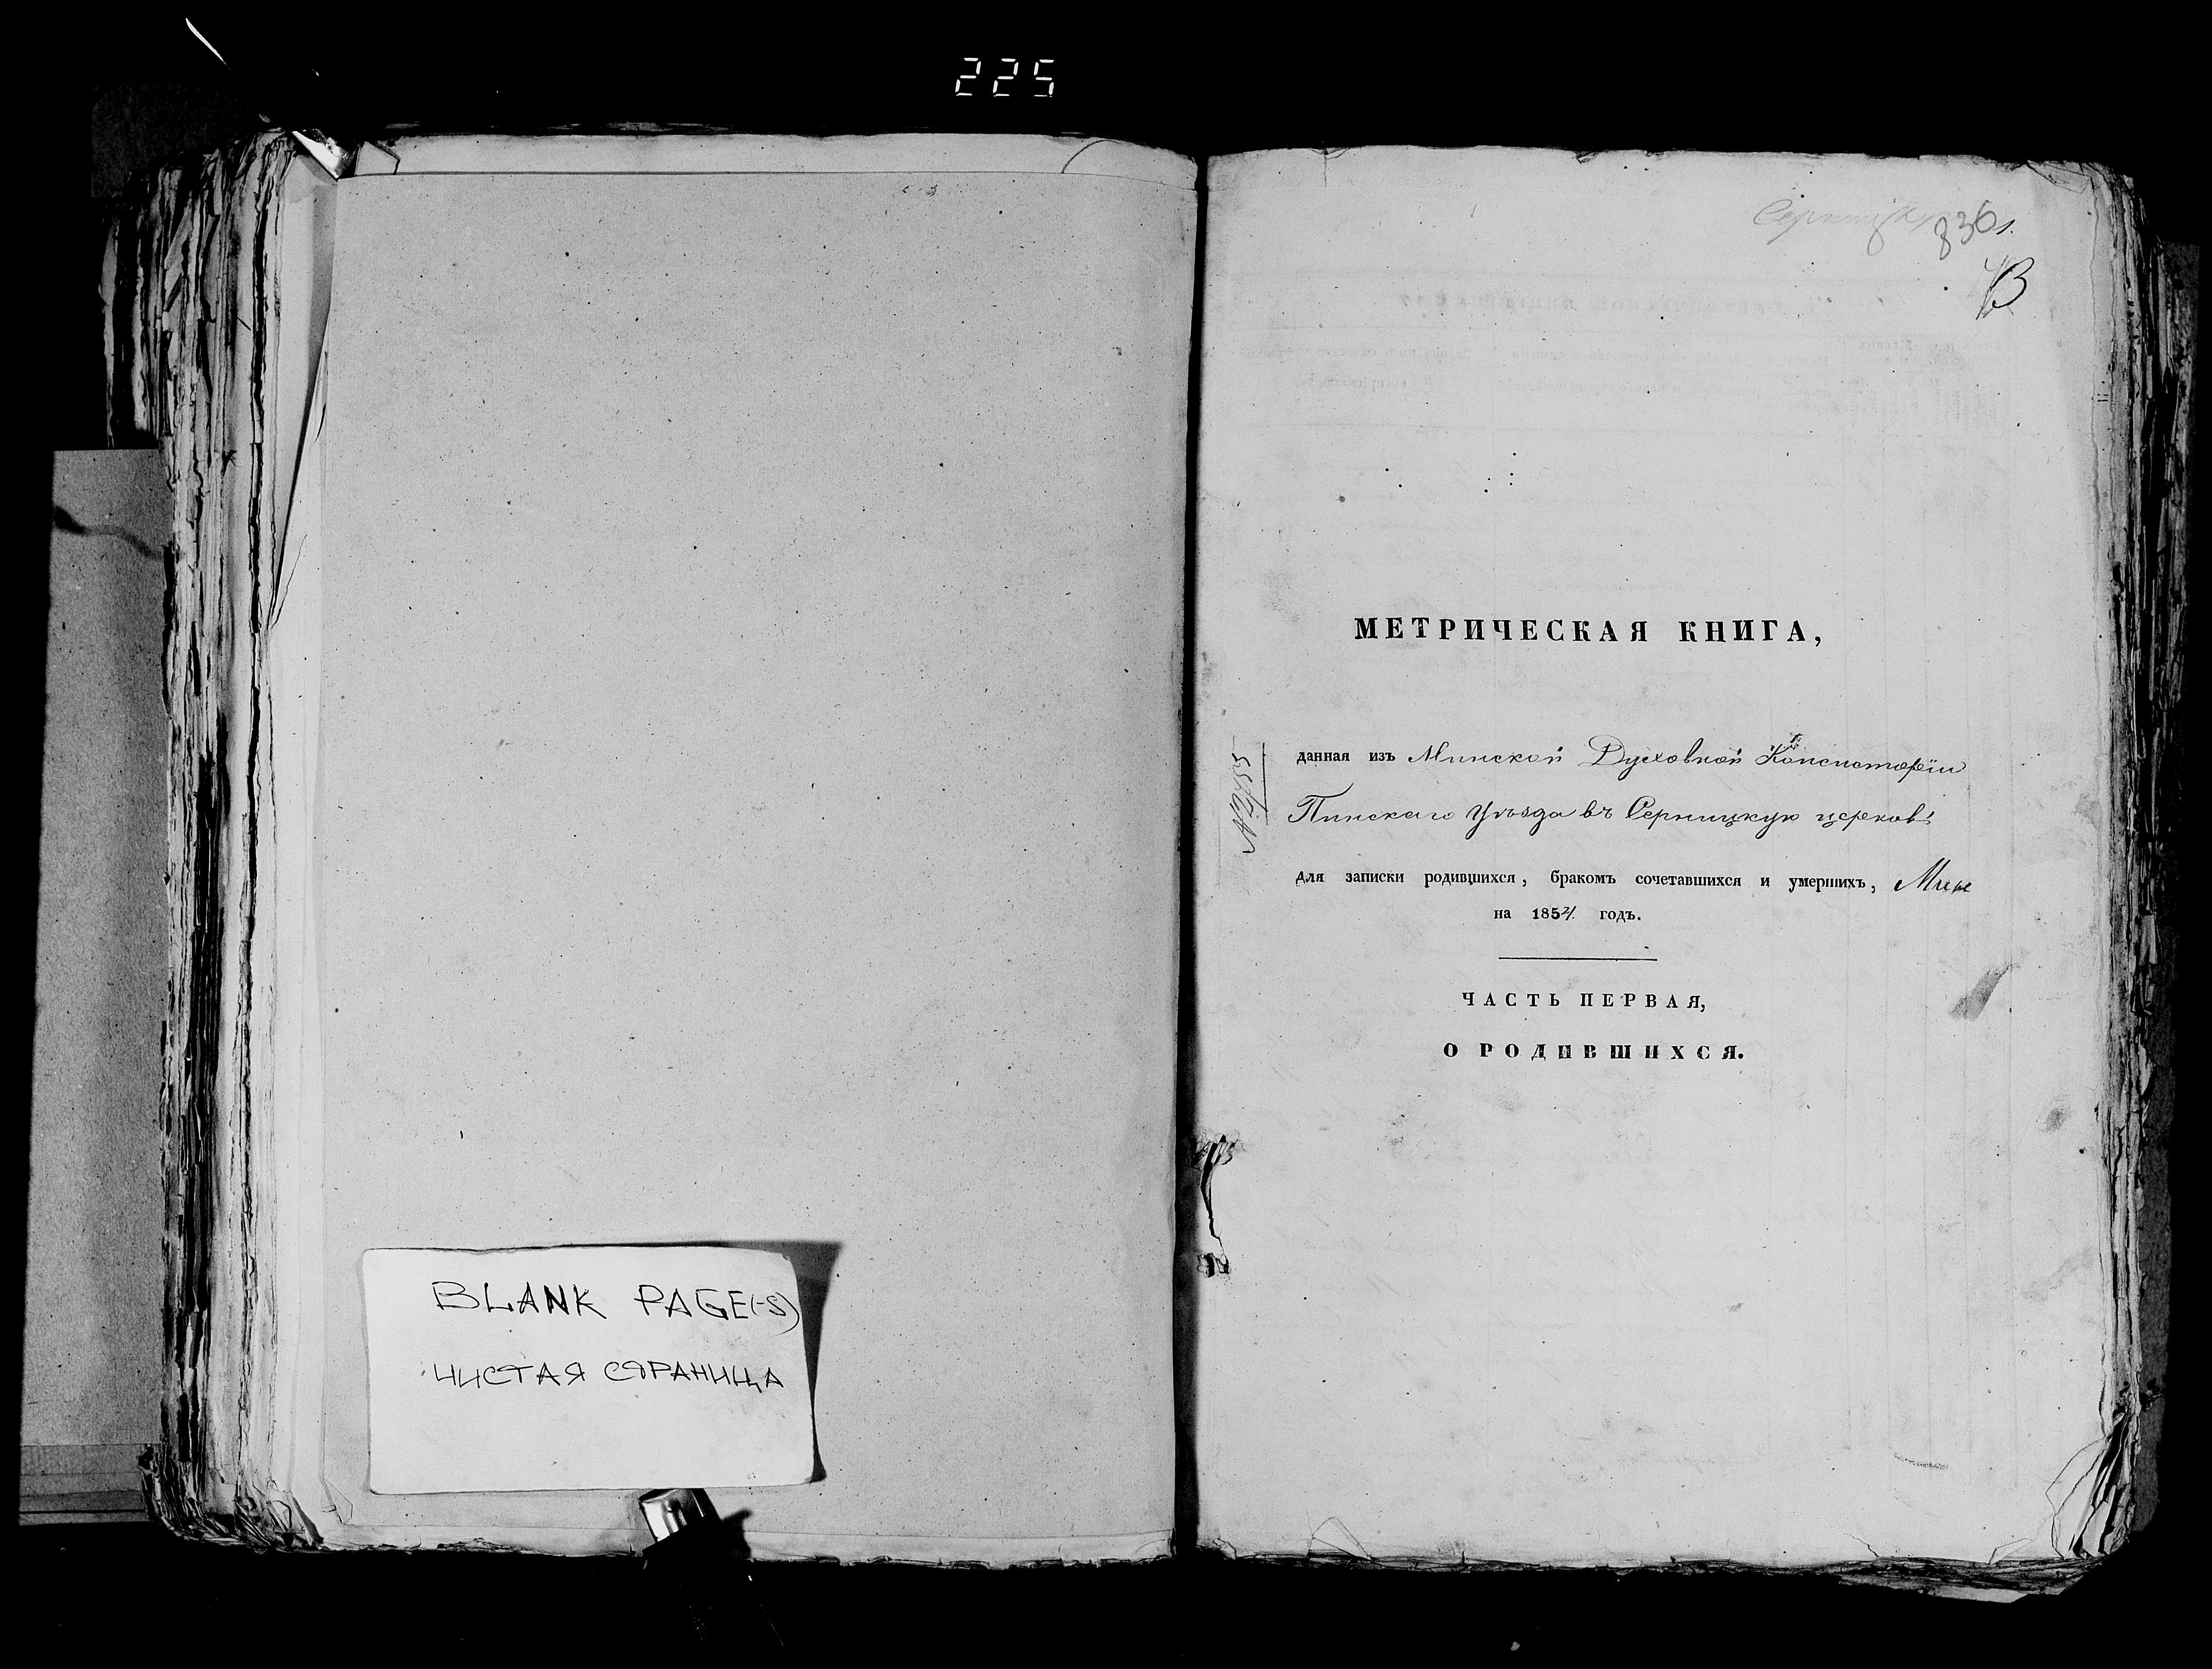 225
BLANK PAGE(-S)
ЧИСТАЯ СТРАНИЦА
836
МЕТРИЧЕСКАЯ КНИГА,
данная изъ Минской Духовной Консисторіи
Пинскаго Уѣзда въ Серницкую церковь
для записки родившихся, бракомъ сочетавшихся и умершихъ,
на 1854 годъ.
ЧАСТЬ ПЕРВАЯ,
О РОДИВШИХСЯ.